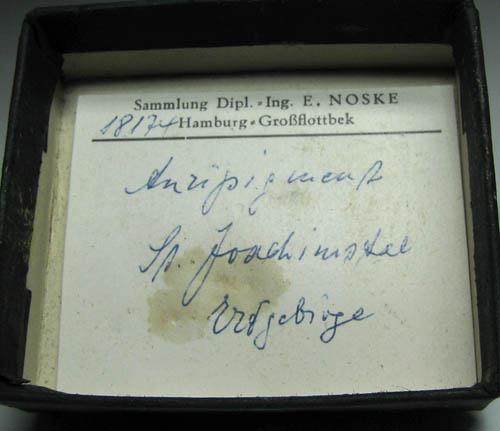 Sammlung Dipl.-Ing. E. NOSKE
18174 Hamburg-Großflottbek
Auripigment
St. Joachimstal
Erzgebirge